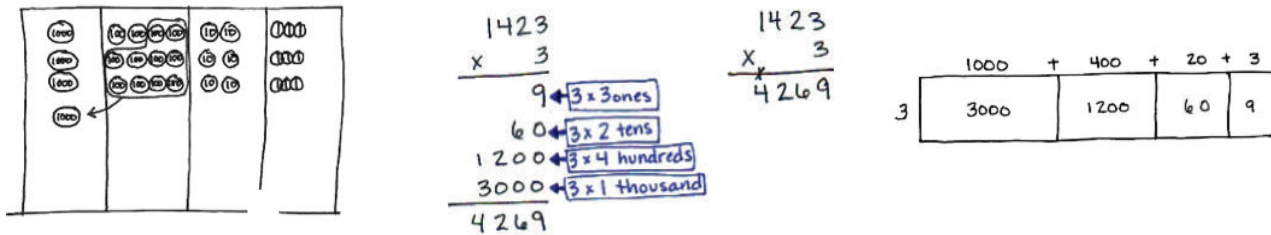 1000 100 100 100 100 10 10 1 1 1
1000 100 100 100 100 10 10 1 1 1
1000 100 100 100 100 10 10 1 1 1
1000
1423
x 3
9 3 x 3 ones
60 3 x 2 tens
1200 3 x 4 hundreds
3000 3 x 1 thousand
4269
1423
x 3
4269
1000 + 400 + 20 + 3
3 3000 1200 60 9